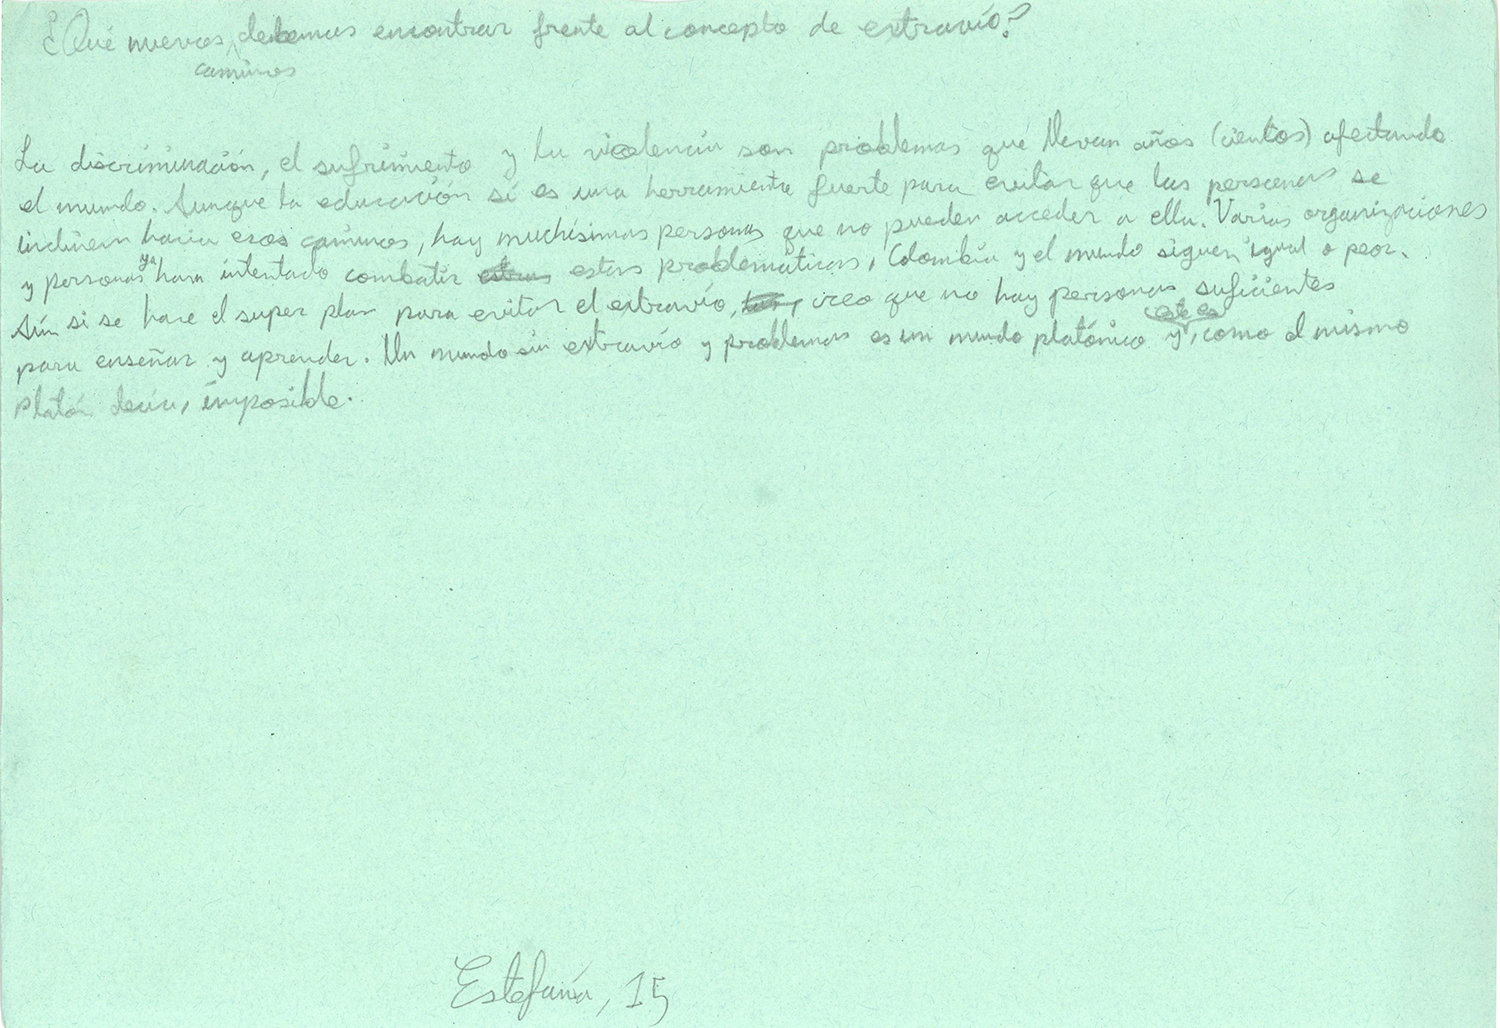 ¿Qué nuevos caminos debemos encontrar frente al concepto de extravío?
La discriminación, el sufrimiento y la violencia son problemas que llevan años (cientos) afectando
el mundo. Aunque la educación sí es una herramienta fuerte para evitar que las personas se
inclinen hacia esos caminos, hay muchísimas personas que no pueden acceder a ella. Varias organizaciones
y personas ya han intentado combatir estas problemáticas, Colombia y el mundo siguen igual o peor.
Aún si se hace el super plan para evitar el extravío, creo que no hay personas suficientes
para enseñar y aprender. Un mundo sin extravío y problemas es un mundo platónico y este es, como el mismo
Platón decía, imposible.
Estefanía, 15